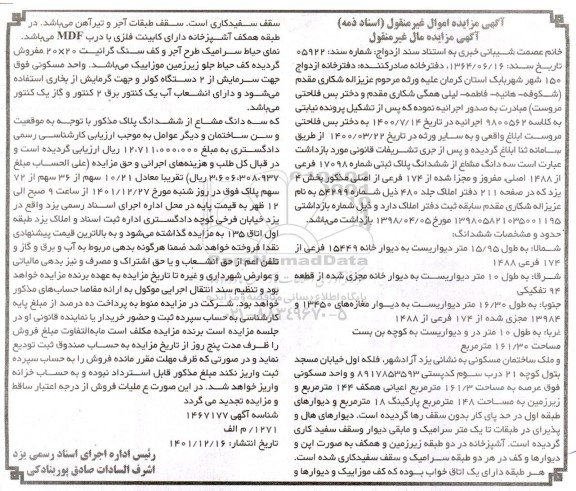 آگهی مزایده اموال غیرمنقول (اسناد ذمه)
آگهی مزایده مال غیرمنقول
خانم عصمت شیبانی خبری به استناد سند ازدواج: شماره سند: ۰۵۹۲۲
تاریخ سند: ۱۳۶۴/۰۶/۱۶، دفترخانه صادرکننده: دفترخانه ازدواج
۱۵۰ شهر شهربابک استان کرمان علیه ورثه مرحوم عزیزاله شکاری مقدم
(شکوفه- هانیه- فاطمه- لیلی همگی شکاری مقدم و دختر بس فلاحتی
مروست) مبادرت به صدور اجرائیه نموده که پس از تشکیل پرونده نیابتی
به کلاسه ۹۸۰۰۵۶۲ اجرائیه در تاریخ ۱۴۰۰/۷/۱۴ به دختر بس فلاحتی
مروست ابلاغ واقعی و به سایر ورثه در تاریخ ۱۴۰۰/۰۳/۲۲ از طریق
سامانه ثنا ابلاغ گردیده و پس از جری تشریفات قانونی مورد بازداشت
عبارت است سه دانگ مشاع از ششدانگ پلاک ثبتی شماره ۱۷۰۹۸ فرعی
از ۱۴۸۸ اصلی، مفروز و مجزا شده از ۱۷۴ فرعی از اصلی مذکور بخش ۴
یزد که در صفحه ۲۱۱ دفتر املاک جلد ۴۸۰ ذیل شماره ۵۴۲۴۹ به نام
عزیزاله شکاری مقدم سابقه ثبت دفتر املاک دارد و ذیل شماره بازداشتی
۱۳۹۸۰۵۸۲۱۰۳۵۰۰۱۱۹۵ مورخ ۱۳۹۸/۰۴/۰۵ بازداشت می‌باشد.
حدود و مشخصات ششدانگ:
شمالا: به طول ۱۵/۹۵ متر دیواریست به دیوار خانه ۱۵۴۴۹ فرعی از
۱۷۴ فرعی ۱۴۸۸
شرقا: به طول ۱۰ متر دیواریست به دیوار خانه مجزی شده از قطعه
۹۴ تفکیکی
جنوبا: به طول ۱۶/۳۰ متر دیواریست به دیوار مغازه‌های ۱۳۴۵۰ و
۱۳۹۸۴ مجزی شده از ۱۷۴ فرعی از ۱۴۸۸
غربا: به طول ۱۰ متر در و دیواریست به کوچه بن بست
مساحت ۱۶۱/۳۰ مترمربع
و ملک ساختمان مسکونی به نشانی یزد آزادشهر، فلکه اول خیابان مسجد
بتول کوچه ۲۱ درب سوم کدپستی ۸۹۱۷۸۵۳۵۹۳ و واحد مسکونی
فوق عرصه به مساحت ۱۶۱/۳ مترمربع اعیانی همکف ۱۴۴ مترمربع و
زیرزمین به مساحت ۱۴۸ مترمربع پارکینگ ۱۸ مترمربع و دیوارهای
طبقه اول در حد پای کار بدون سقف رها گردیده است. دیوارهای هال و
پذیرایی در طبقات تا یک متر سرامیک و مابقی دیوار وسقف سفید کاری
گردیده است. آشپزخانه در دو طبقه زیرزمین و همکف به صورت اپن و
دیوارها و کف در هر دو طبقه سرامیک و سقف سفیدکاری شده است.
هر طبقه دارای یک اتاق خواب بوده که کف موزاییک و دیوارها و
سقف سفیدکاری است. سقف طبقات آجر و تیرآهن می‌باشد. در
طبقه همکف آشپزخانه دارای کابینت فلزی با درب MDF می‌باشد.
نمای حیاط سرامیک طرح آجر و کف سنگ گرانیت ۲۰×۲۰ مفروش
گردیده کف حیاط جلو زیرزمین موزاییک می‌باشد. واحد مسکونی فوق
جهت سرمایش از ۲ دستگاه کولر و جهت گرمایش از بخاری استفاده
می‌شود و دارای انشعاب آب یک کنتور برق ۲ کنتور و گاز یک کنتور
می‌باشد.
که سه دانگ مشاع از ششدانگ پلاک مذکور با توجه به موقعیت
و سن ساختمان و دیگر عوامل به موجب ارزیابی کارشناسی رسمی
دادگستری به مبلغ ۱۲.۷۱۱.۰۰۰.۰۰۰ ریال ارزیابی گردیده است و
در قبال کل طلب و هزینه‌های اجرائی و حق مزایده (علی الحساب مبلغ
۳.۶۰۶.۳۰۸.۹۳۷ ریال) تقریبا معادل ۱۰/۲۱ سهم از ۳۶ سهم از ۷۲
سهم پلاک فوق در روز شنبه مورخ ۱۴۰۱/۱۲/۲۷ از ساعت ۹ صبح الی
۱۲ ظهر به قیمت پایه در محل اداره اجرای اسناد رسمی یزد واقع در
یزد خیابان فرخی کوچه دادگستری اداره ثبت اسناد و املاک یزد طبقه
اول اتاق ۱۳۵ به مزایده گذاشته می‌شود و به بالاترین قیمت پیشنهادی
نقدا فروخته خواهد شد ضمنا هرگونه بدهی مربوط به آب و برق و گاز و
تلفن اعم از حق انشعاب و یا حق اشتراک و مصرف و نیز بدهی مالیاتی
و عوارض شهرداری و غیره تا تاریخ مزایده به عهده برنده مزایده خواهد
بود و تنظیم سند انتقال اجرایی موکول به ارائه مفاصا حساب‌های مذکور
خواهد بود. شرکت در مزایده منوط به پرداخت ده درصد از مبلغ پایه
کارشناسی به حساب سپرده ثبت و حضور خریدار یا نماینده قانونی او در
جلسه مزایده است برنده مزایده مکلف است مابه‌التفاوت مبلغ فروش
را ظرف مدت پنج روز از تاریخ مزایده به حساب صندوق ثبت تودیع
نماید و در صورتی که ظرف مهلت مقرر مانده فروش را به حساب سپرده
ثبت واریز نکند مبلغ مذکور قابل استرداد نبوده و به حساب خزانه
واریز خواهد شد. در این صورت عملیات فروش از درجه اعتبار ساقط
و مزایده تجدید می گردد
شناسه آگهی ۱۴۶۷۱۷۷
۱۲۷۱/ م الف
تاریخ انتشار: ۱۴۰۱/۱۲/۱۶
رئیس اداره اجرای اسناد رسمی یزد
اشرف السادات صادق پوربنادکی